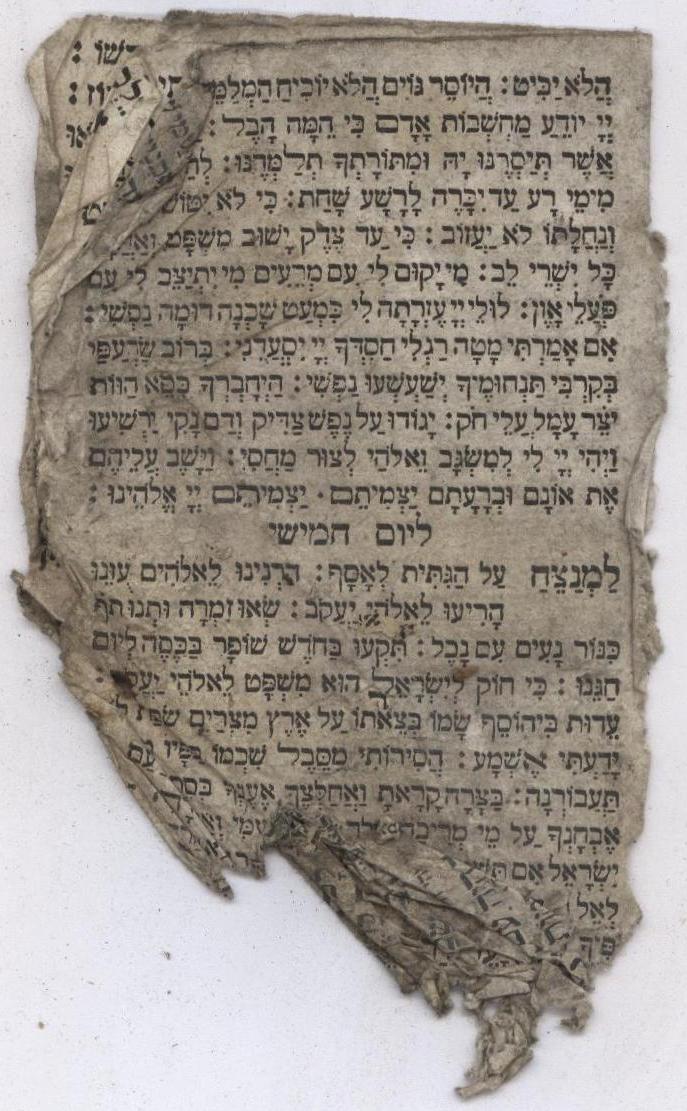 הֲלֹא יַבִּיט: הֲיוֹסֵר גּוֹיִם הֲלֹא יוֹכִיחַ
יְיָ יוֹדֵעַ מַחְשְׁבוֹת אָדָם כִּי הֵמָּה הָבֶל:
אֲשֶׁר תְּיַסְּרֶנּוּ יָהּ וּמִתּוֹרָתְךָ תְלַמְּדֶנּוּ:
מִימֵי רָע עַד יִכָּרֶה לָרָשָׁע שָׁחַת: כִּי לֹא
וְנַחֲלָתוֹ לֹא יַעֲזוֹב: כִּי עַד צֶדֶק יָשׁוּב מִשְׁפָּט
כָּל יִשְׁרֵי לֵב: מִי יָקוּם לִי עִם מְרֵעִים מִי יִתְיַצֵּב לִי עִם
פֹּעֲלֵי אָוֶן: לוּלֵי יְיָ עֶזְרָתָה לִּי כִּמְעַט שָׁכְנָה דוּמָה נַפְשִׁי:
אִם אָמַרְתִּי מָטָה רַגְלִי חַסְדְּךָ יְיָ יִסְעָדֵנִי: בְּרוֹב שַׂרְעַפַּי
בְּקִרְבִּי תַּנְחוּמֶיךָ יְשַׁעַשְׁעוּ נַפְשִׁי: הַיְחָבְרְךָ כִּסֵּא הַוּוֹת
יֹצֵר עָמָל עֲלֵי חֹק: יָגוֹדּוּ עַל נֶפֶשׁ צַדִּיק וְדָם נָקִי יַרְשִׁיעוּ
וַיְהִי יְיָ לִי לְמִשְׂגָּב וֵאלֹהַי לְצוּר מַחְסִי: וַיָּשֶׁב עֲלֵיהֶם
אֶת אוֹנָם וּבְרָעָתָם יַצְמִיתֵם. יַצְמִיתֵם יְיָ אֱלֹהֵינוּ:
ליום חמישי
לַמְנַצֵּחַ עַל הַגִּתִּית לְאָסָף: הַרְנִינוּ לֵאלֹהִים עֻזֵּנוּ
הָרִיעוּ לֵאלֹהֵי יַעֲקֹב: שְׂאוּ זִמְרָה וּתְנוּ תֹף
כִּנּוֹר נָעִים עִם נָבֶל: תִּקְעוּ בַחֹדֶשׁ שׁוֹפָר בַּכֶּסֶה לְיוֹם
חַגֵּנוּ: כִּי חוֹק לְיִשְׂרָאֵל הוּא מִשְׁפָּט לֵאלֹהֵי
עֵדוּת בִּיהוֹסֵף שָׂמוֹ בְּצֵאתוֹ עַל אֶרֶץ מִצְרָיִם
יָדַעְתִּי אֶשְׁמָע: הֲסִירוֹתִי מִסֵּבֶל שִׁכְמוֹ
תַּעֲבוֹרְנָה: בַּצָּרָה קָרָאתָ וַאֲחַלְּצֶךָּ אֶעֶנְךָ
אֶבְחָנְךָ עַל מֵי מְרִיבָה
יִשְׂרָאֵל אִם
לְאֵל
פִּיךָ